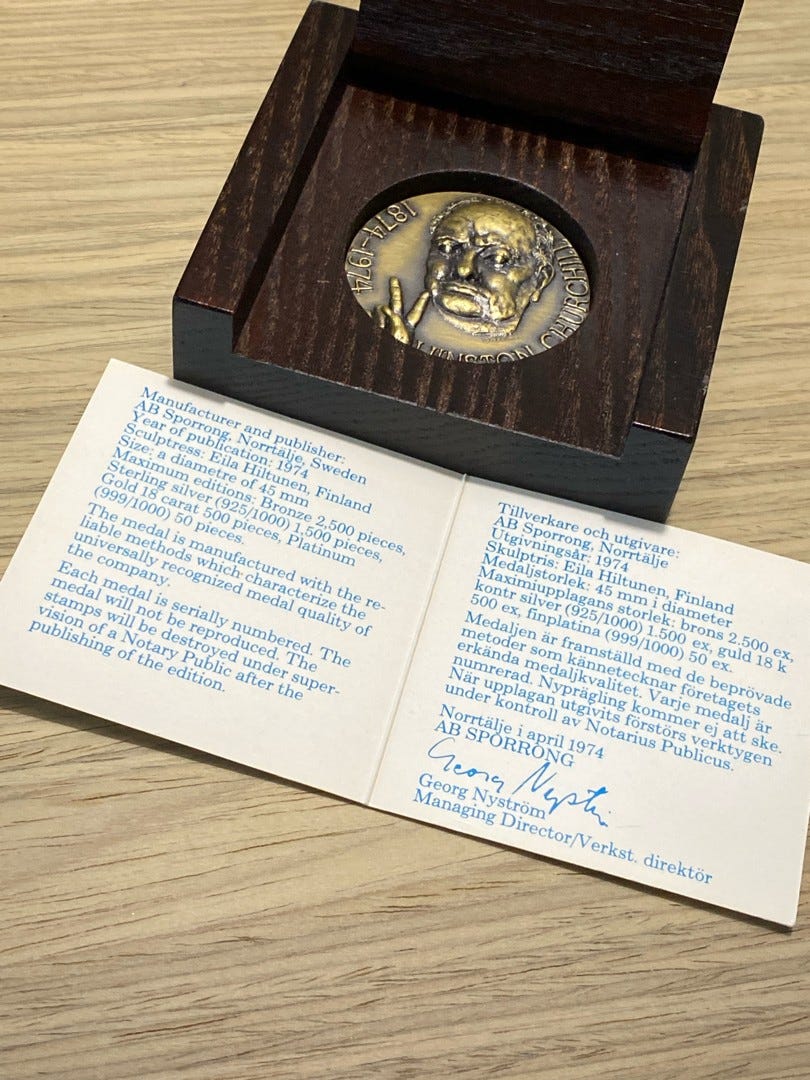 1874-1974
WINSTON CHURCHILL
Manufacturer and publisher:
AB Sporrong, Norrtälje, Sweden
Year of publication: 1974
Sculptress: Eila Hiltunen, Finland
Size: a diametre of 45 mm
Maximum editions: Bronze 2,500 pieces,
Sterling silver (925/1000) 1,500 pieces,
Gold 18 carat 500 pieces, Platinum
(999/1000) 50 pieces.
The medal is manufactured with the re-
liable methods which characterize the
universally recognized medal quality of
the company.
Each medal is serially numbered. The
medal will not be reproduced. The
stamps will be destroyed under super-
vision of a Notary Public after the
publishing of the edition.
Tillverkare och utgivare:
AB Sporrong, Norrtälje
Utgivningsår: 1974
Skulptris: Eila Hiltunen, Finland
Medaljstorlek: 45 mm i diameter
Maximiupplagans storlek: brons 2.500 ex,
kontr silver (925/1000) 1.500 ex, guld 18 k
500 ex, finplatina (999/1000) 50 ex.
Medaljen är framställd med de beprövade
metoder som kännetecknar företagets
erkända medaljkvalitet. Varje medalj är
numrerad. Nyprägling kommer ej att ske.
När upplagan utgivits förstörs verktygen
under kontroll av Notarius Publicus.
Norrtälje i april 1974
AB SPORRONG
Georg Nyström
Georg Nyström
Managing Director/Verkst. direktör